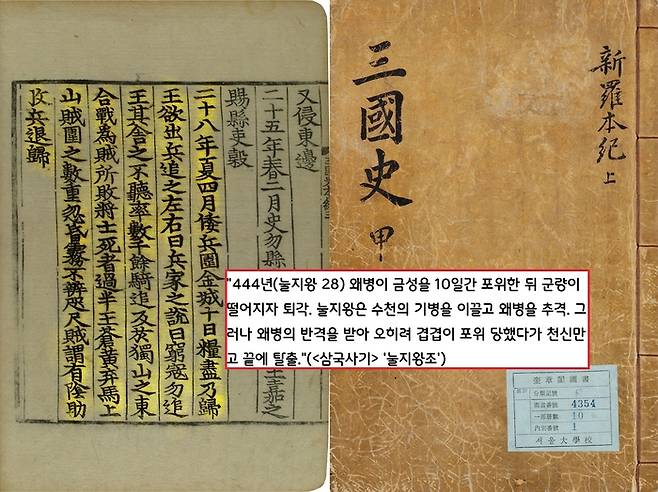 又侵東邊
二十五年春二月史勿縣
王嘉之
賜縣吏穀
二十八年夏四月倭兵圍金城十日糧盡乃歸
王欲出兵追之左右曰兵家之說曰窮寇勿追
王其舍之不聽率數千餘騎追及於獨山之東
合戰爲賊所敗將士死者過半王蒼黃弃馬上
山賊圍之數重忽昏霧不辨咫尺賊謂有陰助
收兵退歸
三國史 甲
新羅本紀 上
"444년(눌지왕 28) 왜병이 금성을 10일간 포위한 뒤 군량이
떨어지자 퇴각. 눌지왕은 수천의 기병을 이끌고 왜병을 추격. 그
러나 왜병의 반격을 받아 오히려 겹겹이 포위 당했다가 천신만
고 끝에 탈출."(<삼국사기> '눌지왕조')
奎章閣圖書
分類記號
圖書番號 4354
一部冊數 10
內容番號 1
서울大學校